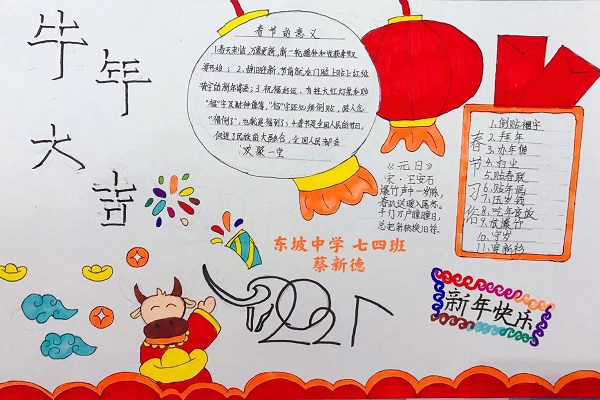 牛年大吉
春节的意义
1.春天来临,万象更新,新一轮播种和收获季节又
要开始;2.辞旧迎新,节前就在门脸上贴上红纸
黄字的新年寄语;3.祝福好运,有挂大红灯笼和贴
"福"字及财神像等,"福"字还必须倒贴,路人念
"福倒了",也就是福到了;4.春节是全国人民的节日,
促进了民族的大团结,全国人民都会
欢聚一堂
《元日》
宋·王安石
爆竹声中一岁除,
春风送暖入屠苏。
千门万户曈曈日,
总把新桃换旧符。
春节习俗
1.倒贴福字
2.拜年
3.办年货
4.扫尘
5.贴春联
6.贴年画
7.压岁钱
8.吃年夜饭
9.放爆竹
10.守岁
11.穿新衫
东坡中学 七四班
蔡新德
2021
新年快乐